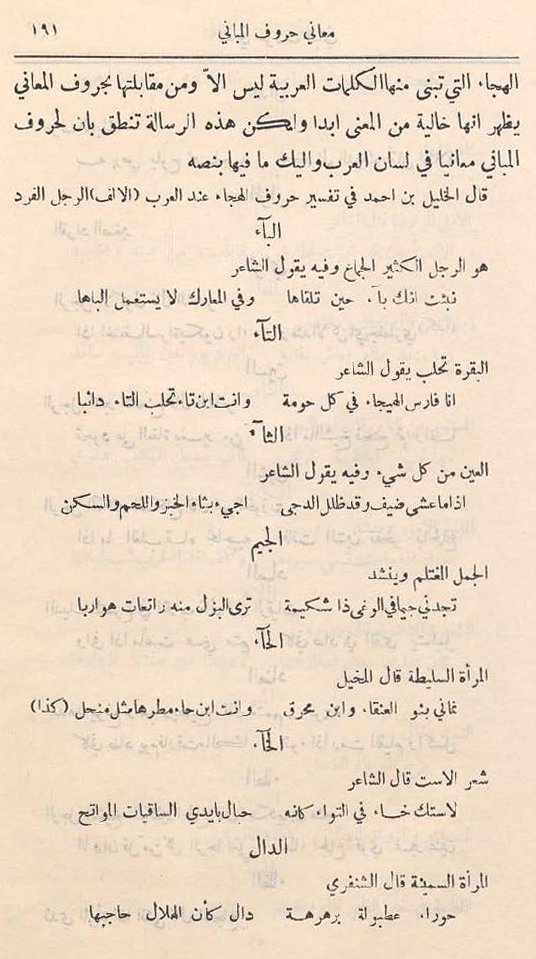 معاني حروف المباني ١٩١
الهجاء التي تبنى منها الكلمات العربية ليس الاّ ومن مقابلتها بحروف المعاني
يظهر انها خالية من المعنى ابدا ولكن هذه الرسالة تنطق بان لحروف
المباني معانيا في لسان العرب واليك ما فيها بنصه
قال الخليل بن احمد في تفسير حروف الهجاء عند العرب (الالف) الرجل الفرد
البآء
هو الرجل الكثير الجماع وفيه يقول الشاعر
نبئت انك بآء حين تلقاها وفي المعارك لا يستعمل الباها
التآء
البقرة تحلب يقول الشاعر
انا فارس الهيجاء في كل حومة وانت ابن تاء تحلب التاء دائبا
الثآء
العين من كل شيء وفيه يقول الشاعر
اذا ما عشى ضيف وقد ظلل الدجى اجيء بثاء الخبز واللحم والسكن
الجيم
الجمل المغتلم وينشد
تجدني جيما في الوغى ذا شكيمة ترى البزل منه راتعات هواربا
الحآء
المرأة السليطة قال المخيل
نماني بنو العنقاء وابن محرق وانت ابن حاء مطرها مثل منحل (كذا)
الخآء
شعر الاست قال الشاعر
لاستك خاء في التواء كانه حبال بايدي الساقيات المواتح
الدال
المرأة السمينة قال الشنفري
حوراء عطبولة برهرهة دال كأن الهلال حاجبها